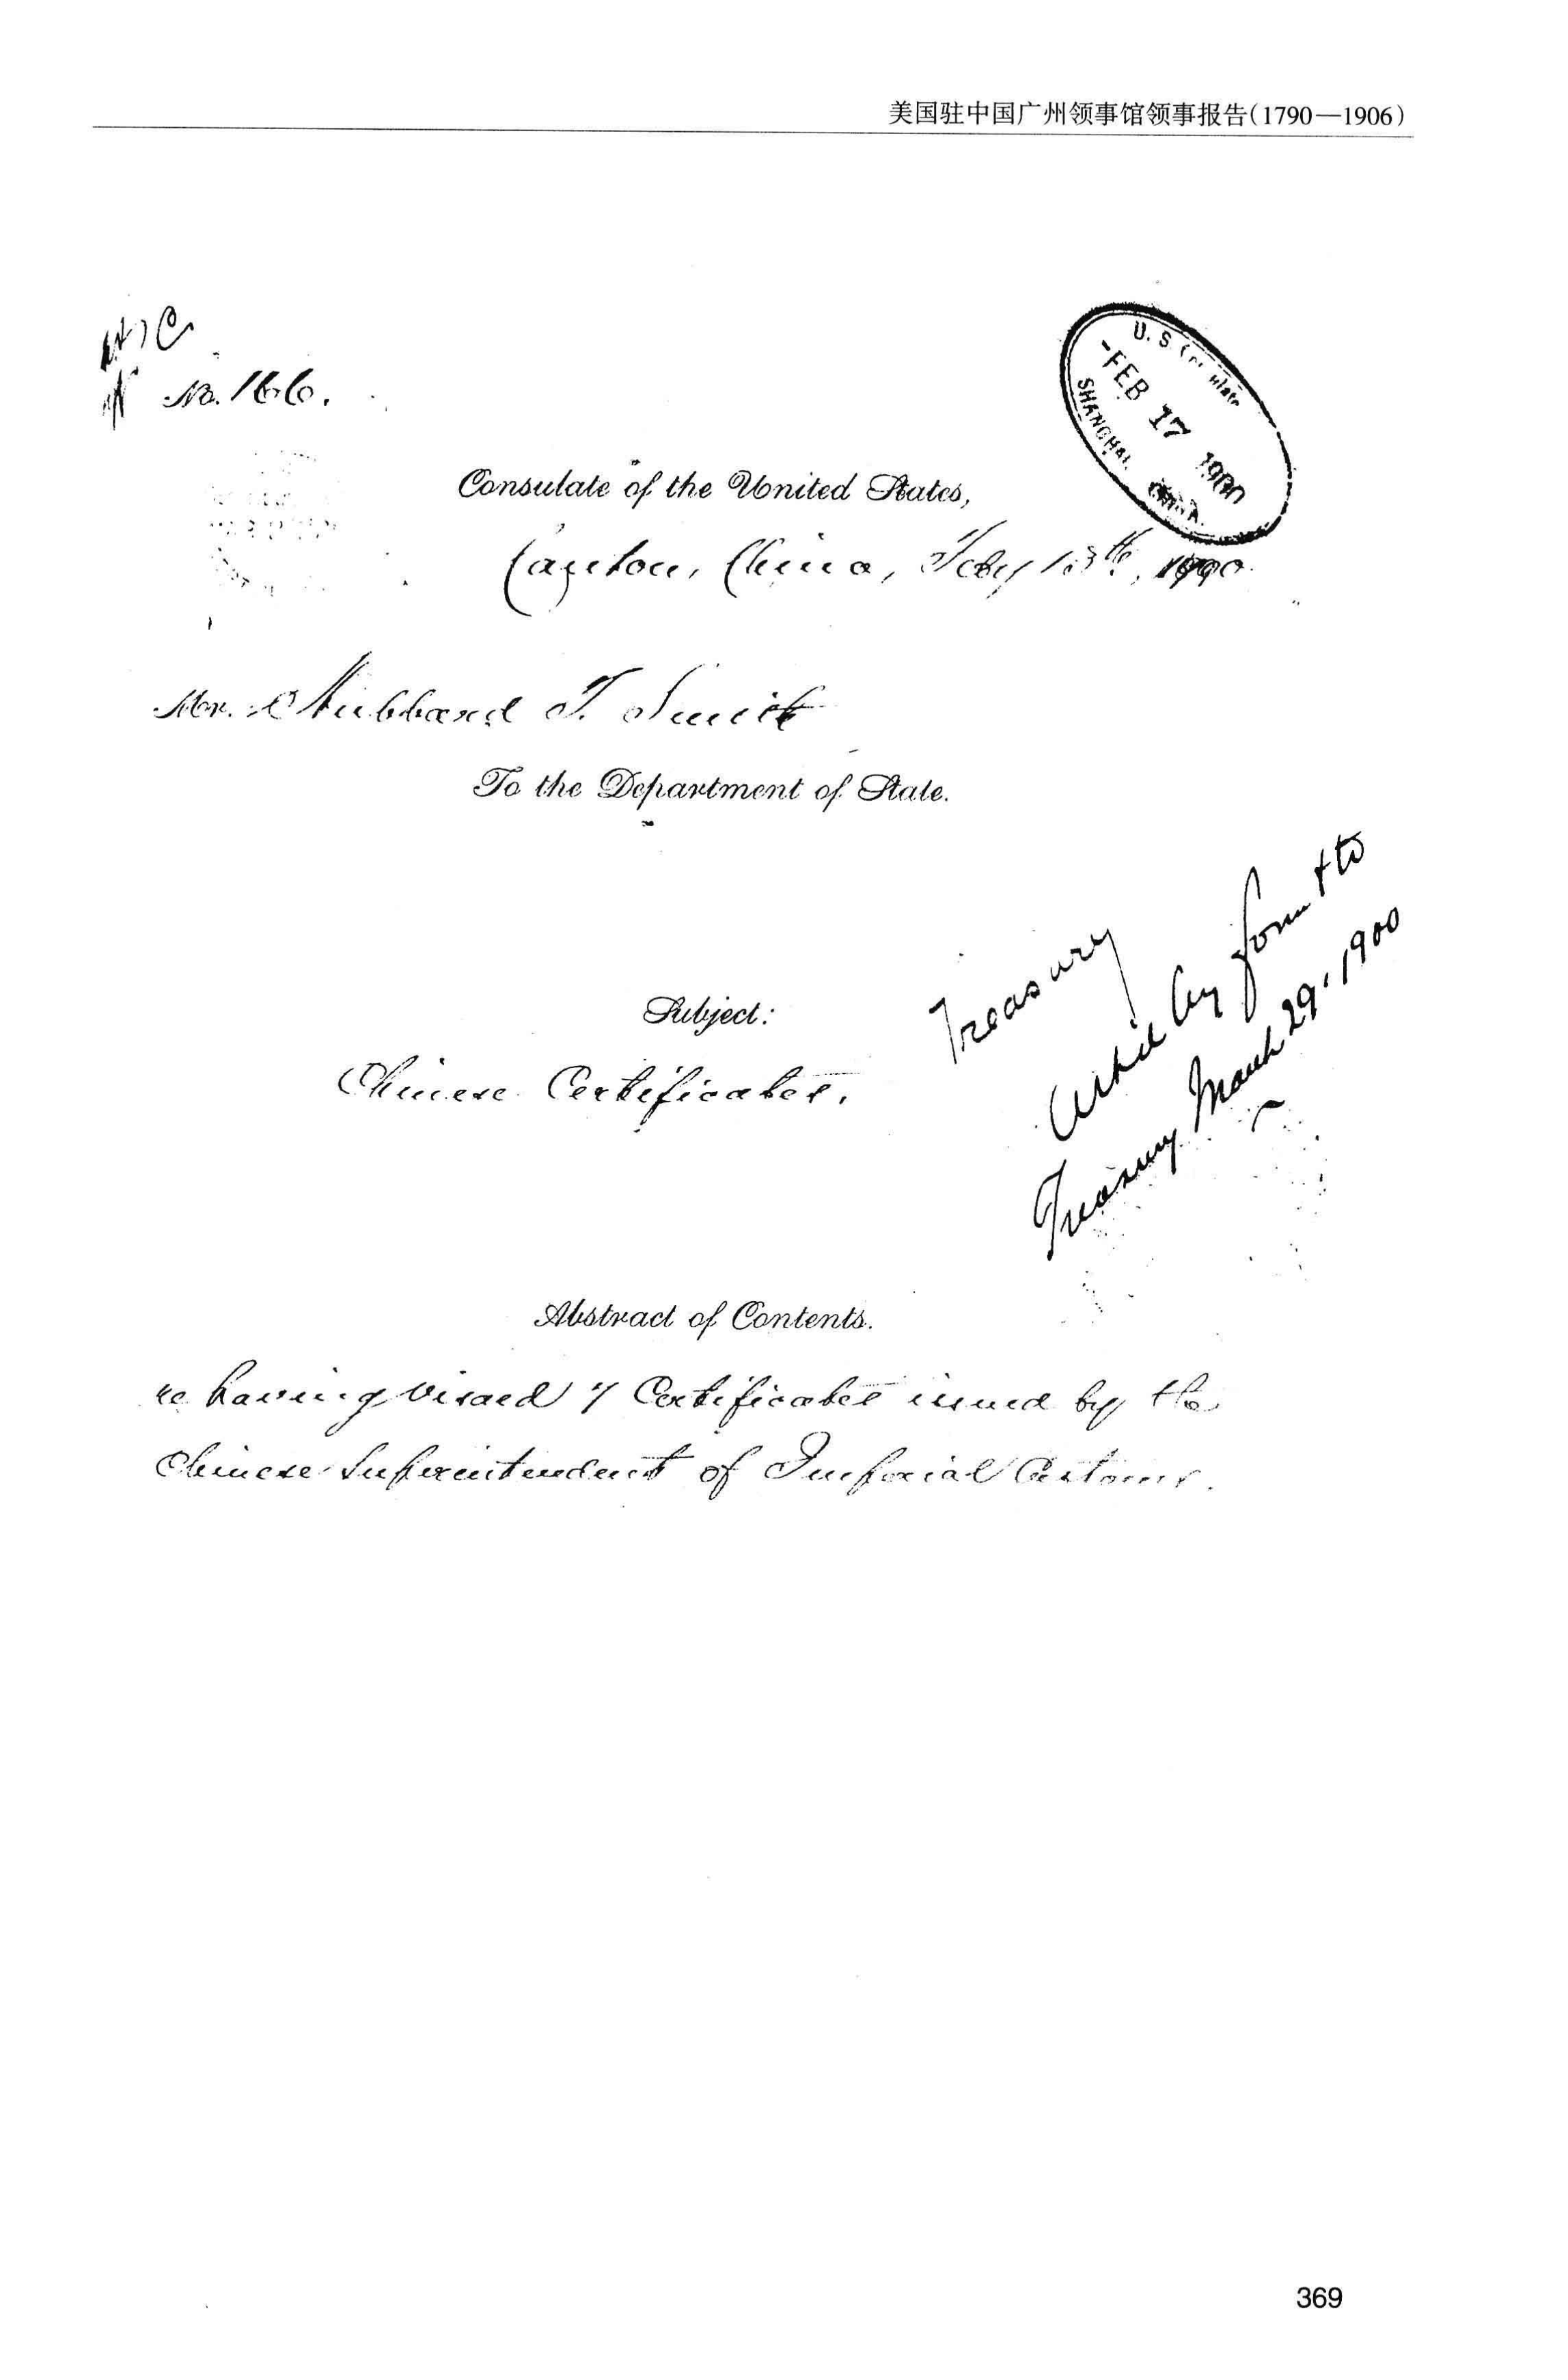 美国驻中国广州领事馆领事报告(1790—1906)
No. 166.
U. S. Consulate
FEB 17 1900
SHANGHAI, CHINA.
Consulate of the United States,
Canton, China, Feby 13th, 1900.
Mr. Hubbard T. Smith
To the Department of State.
Treasury
by form & to
Treasury March 29, 1900
Subject:
Chinese Certificates.
Abstract of Contents.
re having visaed 7 Certificates issued by the
Chinese Superintendent of Imperial Customs.
369